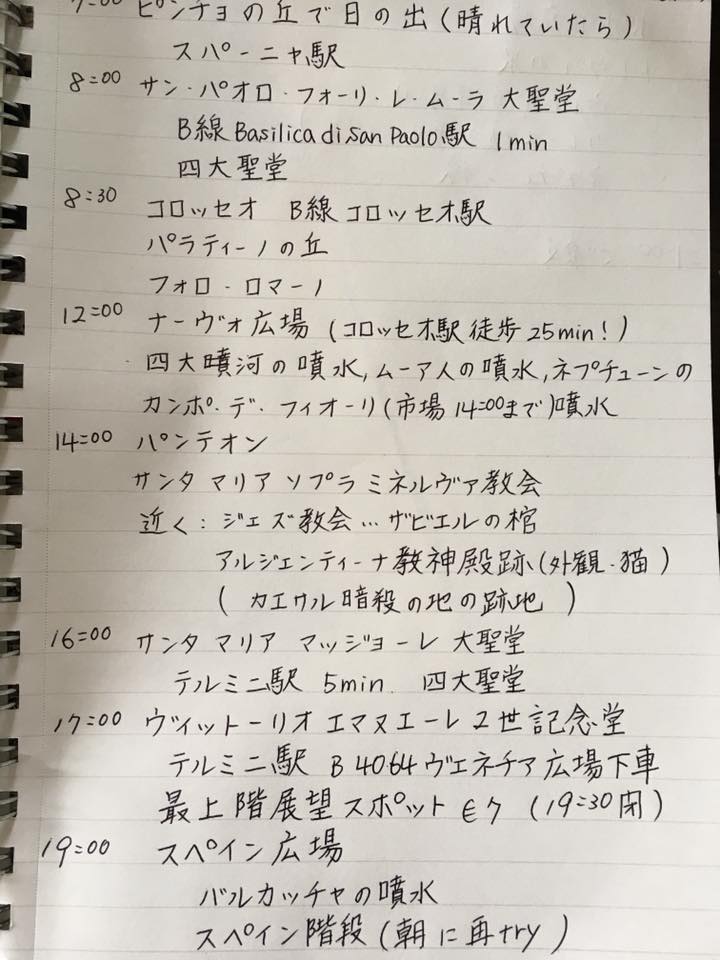 7:00 ピンチョの丘で日の出(晴れていたら)
スパーニャ駅
8:00 サン・パオロ・フォーリ・レ・ムーラ 大聖堂
B線 Basilica di San Paolo駅 1min
四大聖堂
8:30 コロッセオ B線 コロッセオ駅
パラティーノの丘
フォロ・ロマーノ
12:00 ナーヴォ広場 (コロッセオ駅 徒歩 25min!)
四大噴河の噴水, ムーア人の噴水, ネプチューンの
カンポ・デ・フィオーリ(市場 14:00まで)噴水
14:00 パンテオン
サンタ マリア ソプラ ミネルヴァ教会
近く: ジェズ教会…ザビエルの棺
アルジェンティーナ教神殿跡(外観・猫)
( カエサル暗殺の地の跡地 )
16:00 サンタ マリア マッジョーレ 大聖堂
テルミニ駅 5min. 四大聖堂
17:00 ヴィットーリオ エマヌエーレ2世記念堂
テルミニ駅 B 4064 ヴェネチア広場下車
最上階展望スポット €7 (19:30閉)
19:00 スペイン広場
バルカッチャの噴水
スペイン階段(朝に再try)